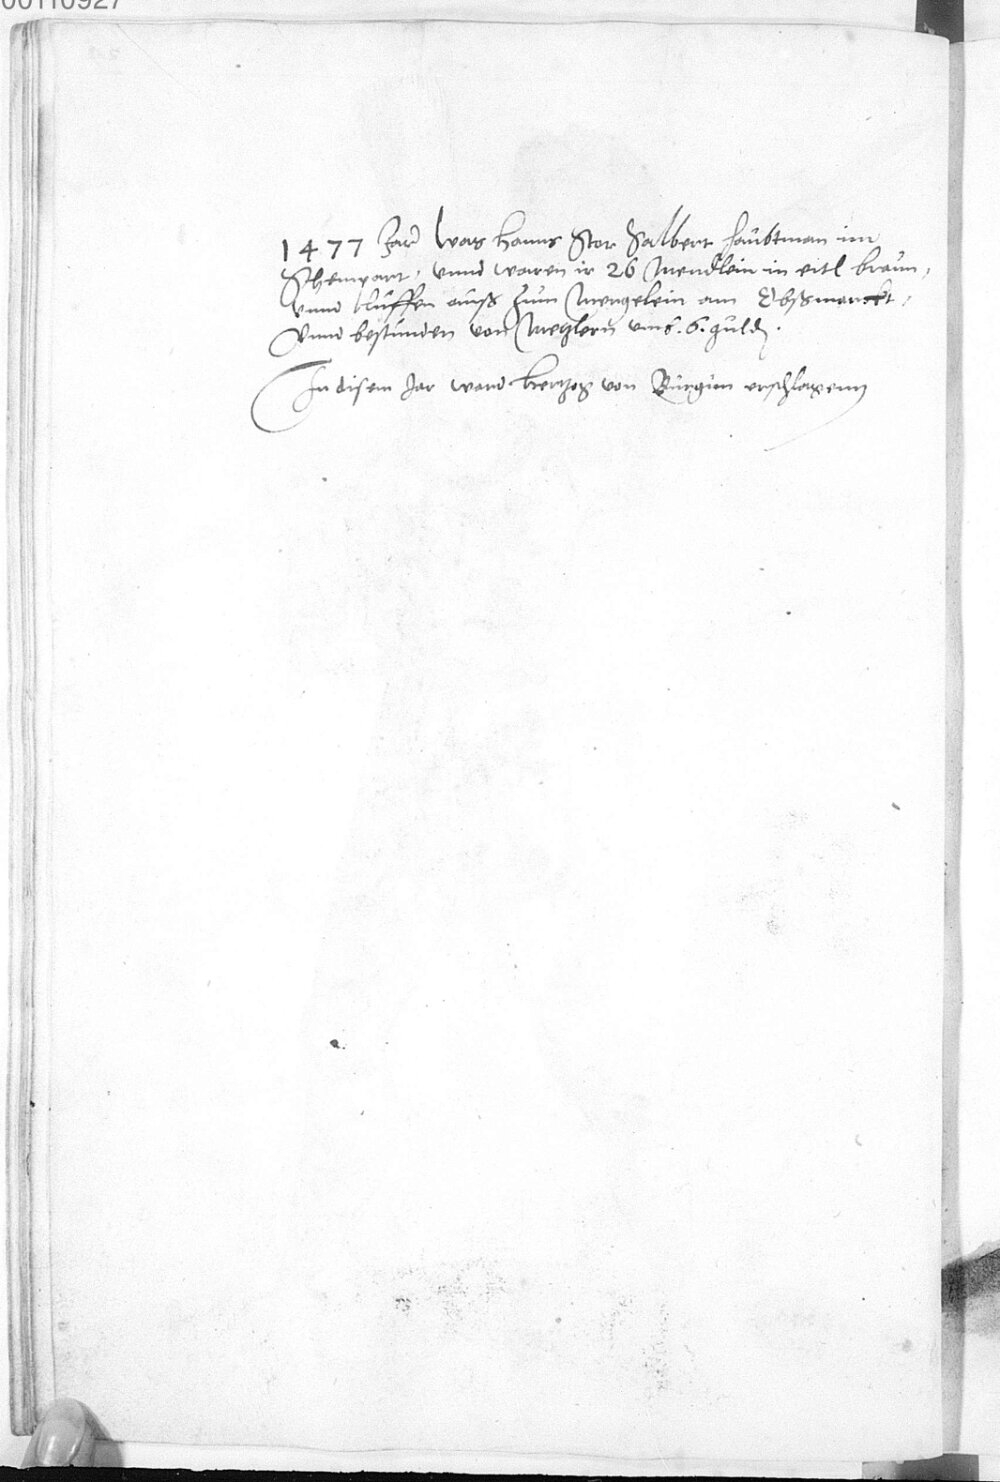 00110927
1477 Jar Was Hanns Stor Salbert haubtman im
Schempart, vnnd waren ir 26 Mendlein in eitl braun,
vnnd luffen auss zum Mengelein am Obssmarckt,
Vnnd bestunden von Metzlern vmb. 6. guld.
In disem Jar ward Hertzog von Burgun erschlagenn